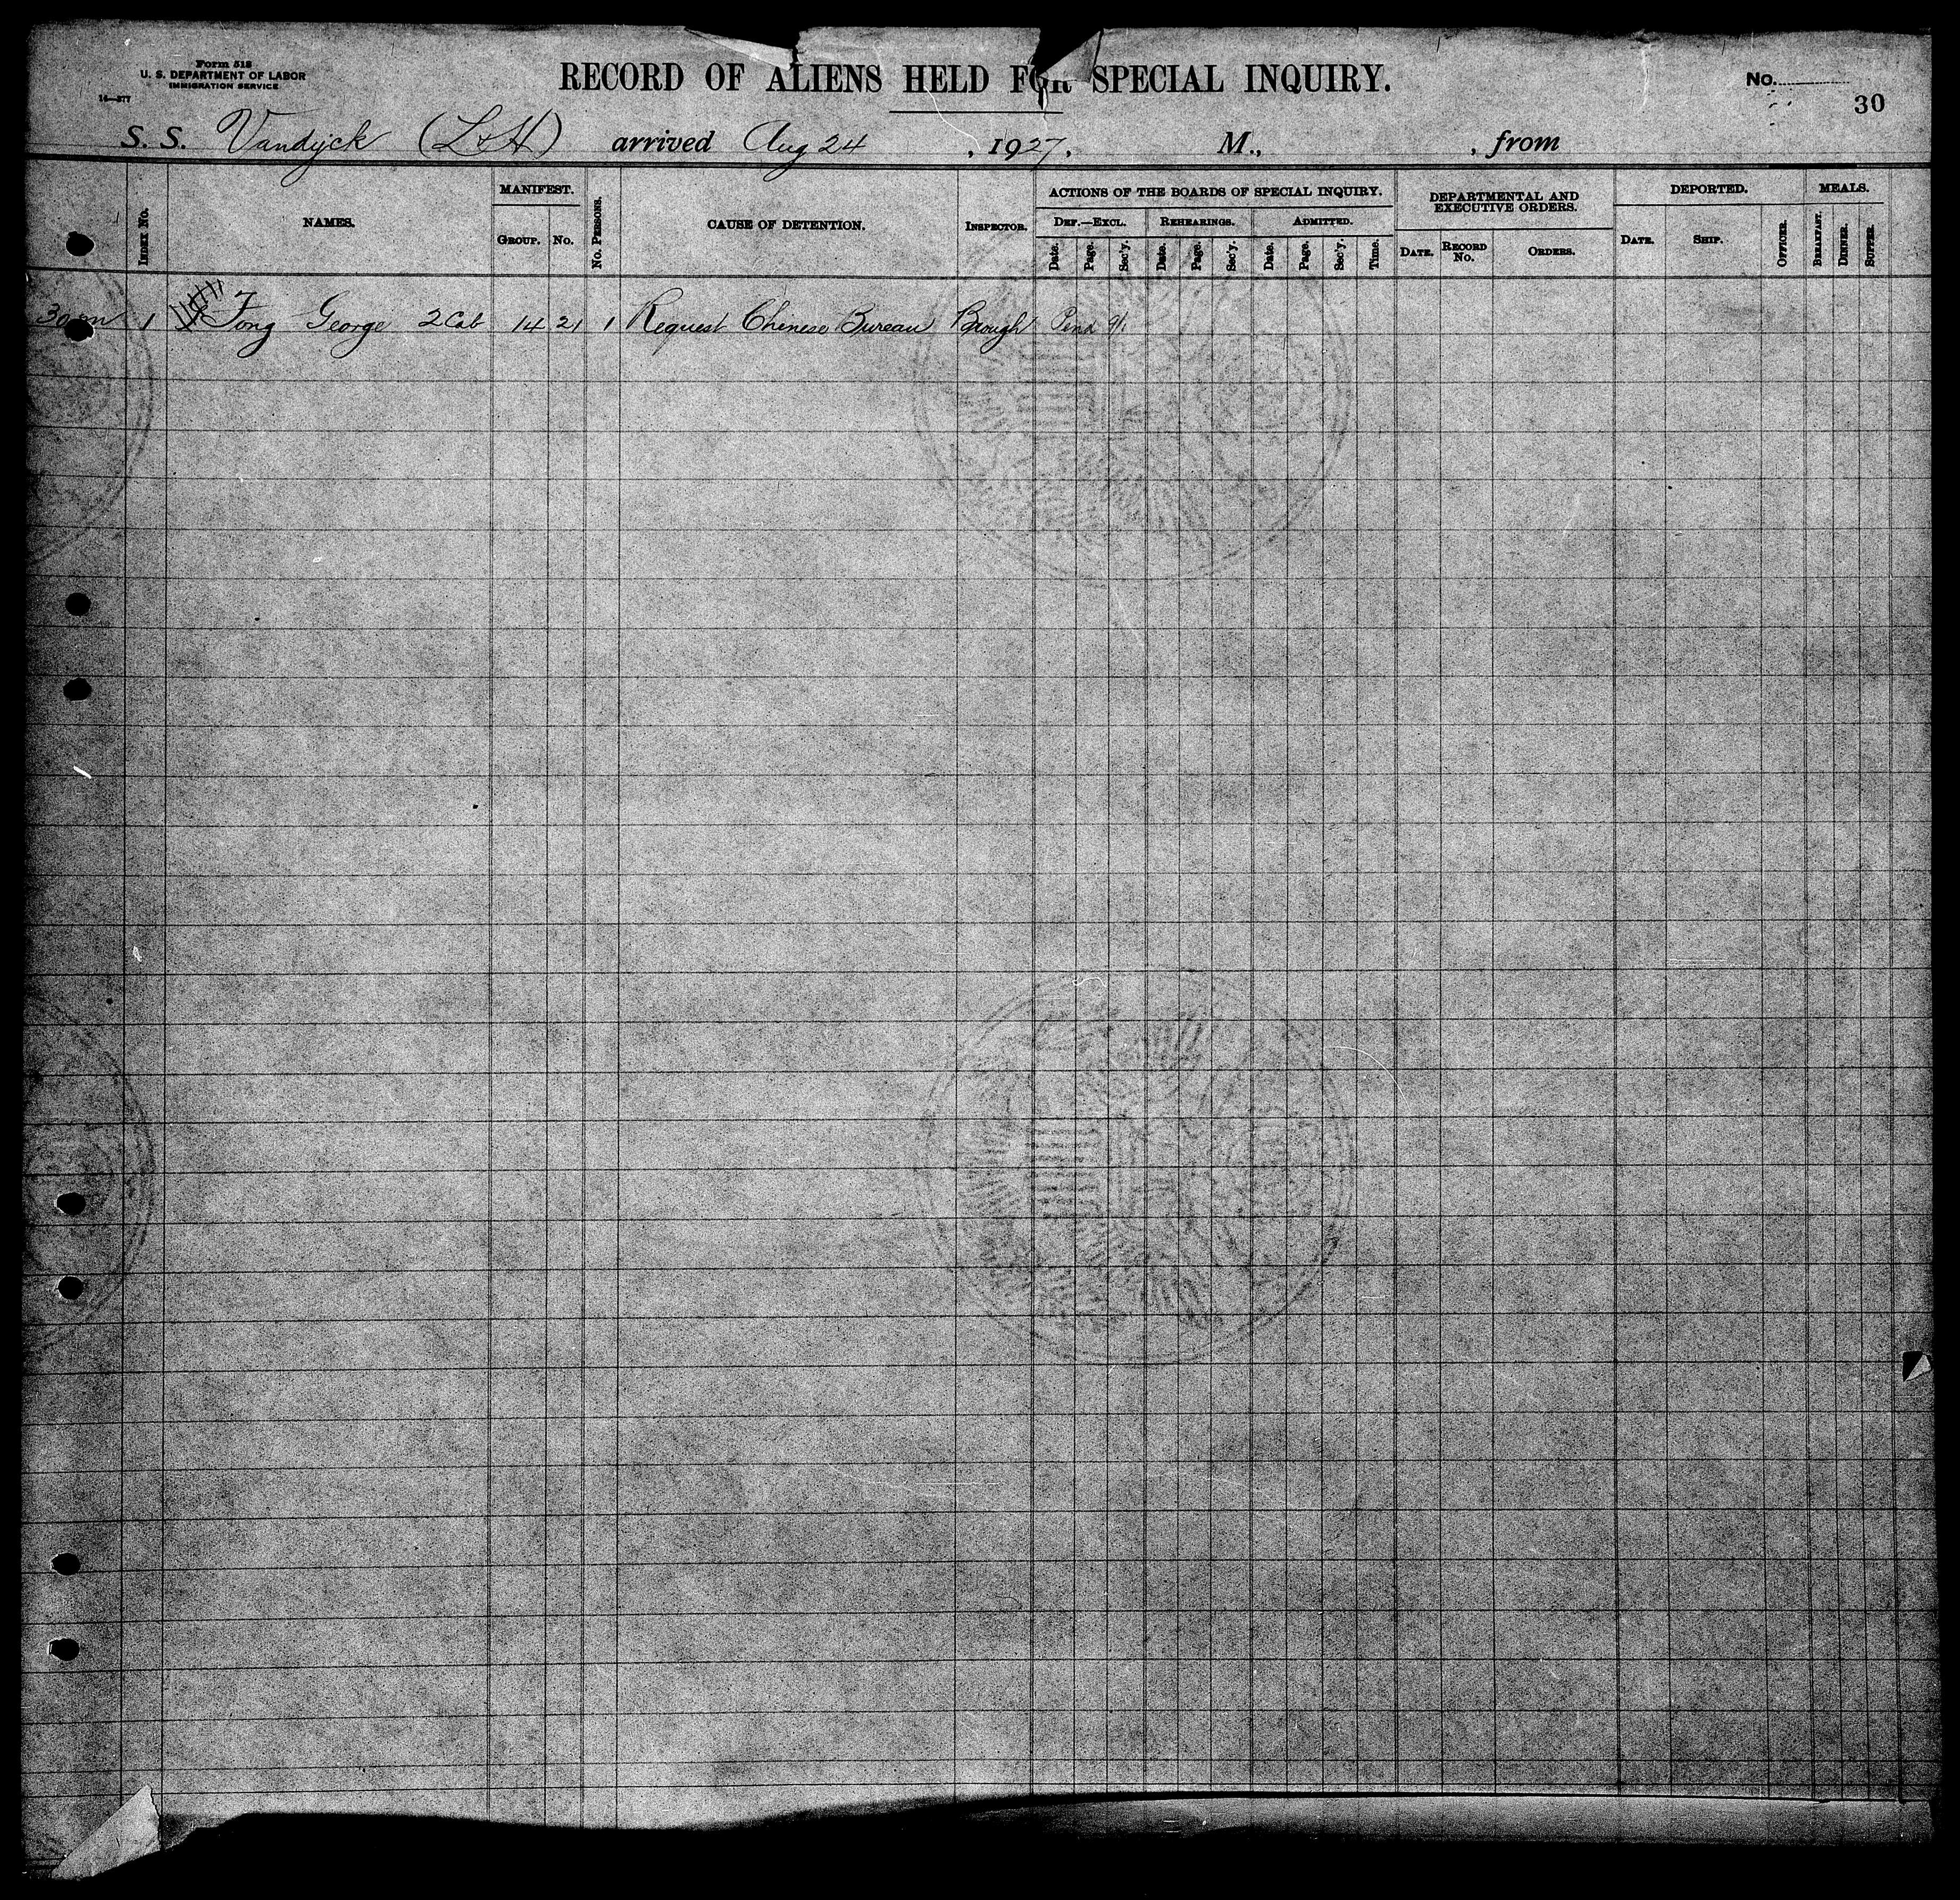 Form 518
U. S. DEPARTMENT OF LABOR
IMMIGRATION SERVICE
14—577
RECORD OF ALIENS HELD FOR SPECIAL INQUIRY.
No.
30
S. S. Vandyck (L&H) arrived Aug 24, 1927, M., , from
INDEX NO.
NAMES.
MANIFEST.
GROUP. NO.
NO. PERSONS.
CAUSE OF DETENTION.
INSPECTOR.
ACTIONS OF THE BOARDS OF SPECIAL INQUIRY.
DEF.—EXCL. REHEARINGS. ADMITTED.
Date. Page. Sec'y. Date. Page. Sec'y. Date. Page. Sec'y. Time.
DEPARTMENTAL AND
EXECUTIVE ORDERS.
DATE. RECORD NO. ORDERS.
DEPORTED.
DATE. SHIP. OFFICER.
MEALS.
BREAKFAST. DINNER. SUPPER.
1 Fong George 2 Cab 14 21 1 Request Chinese Bureau Brough Pend 9/1